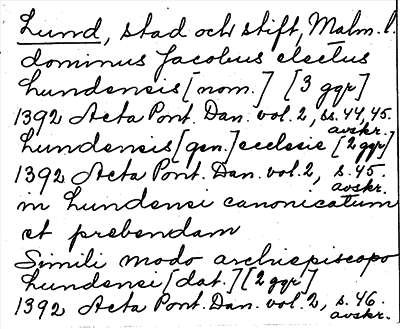 Lund, stad och stift, Malm. l.
dominus Jacobus electus
Lundensis [nom.] [3 ggr]
1392 Acta Pont. Dan. vol. 2, ss. 44, 45.
avskr.
Lundensis [gen.] ecclesie [2 ggr]
1392 Acta Pont. Dan. vol. 2, s. 45.
avskr.
in Lundensi canonicatum
et prebendam
Simili modo archiepiscopo
Lundensi [dat.] [2 ggr]
1392 Acta Pont. Dan. vol. 2, s. 46.
avskr.